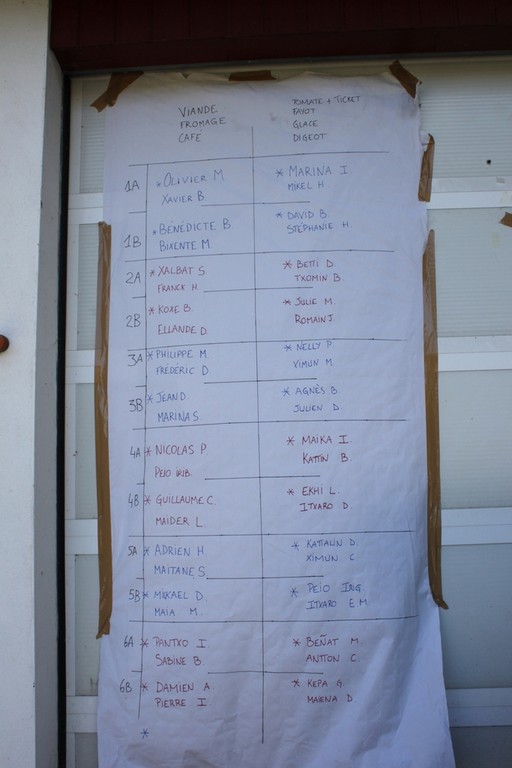 VIANDE
FROMAGE
CAFÉ
TOMATE + TICKET
FAYOT
GLACE
DIGEOT
1A * OLIVIER M * MARINA I
XAVIER B MIKEL H
1B * BÉNÉDICTE B * DAVID B.
BIXENTE M. STÉPHANIE H.
2A * XALBAT S * BETTI D.
FRANCK H TXOMIN B.
2B * KOXE B. * JULIE M.
ELLANDE D. ROMAIN J.
3A * PHILIPPE M * NELLY P
FRÉDÉRIC D. XIMUN M.
3B * JEAN D. * AGNÈS B.
MARINA S JULIEN D
4A * NICOLAS P. * MAIKA I.
PEIO IRIB. KATTIN B.
4B * GUILLAUME C. * EKHI L.
MAIDER L. ITXARO D.
5A * ADRIEN H. * KATTALIN D.
MAITANE S XIMUN C
5B * MIKAEL D. * PEIO IRIG
MAIA M. ITXARO E M
6A * PANTXO I. * BEÑAT M
SABINE B. ANTTON C.
6B * DAMIEN A * KEPA G.
PIERRE I MAIENA D
*